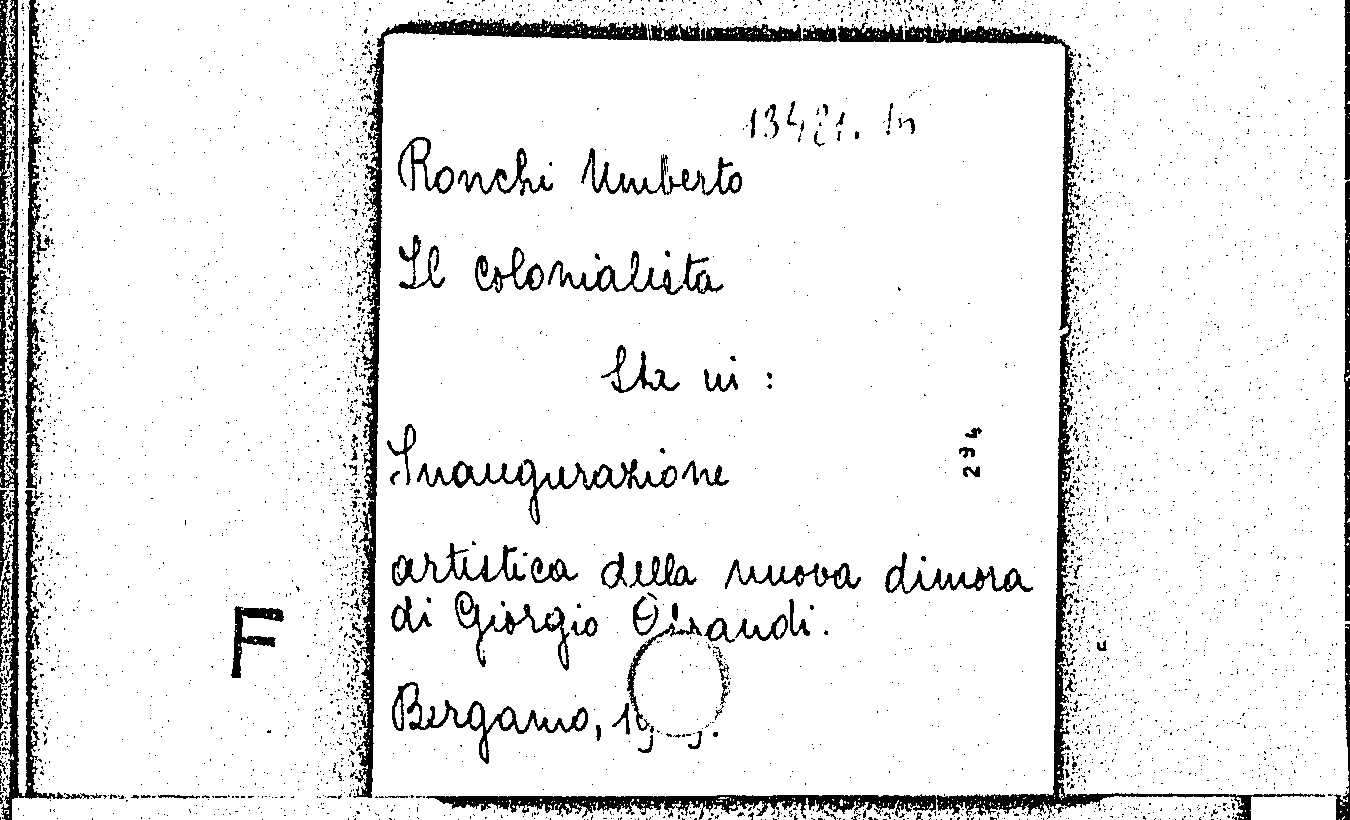 13421. In
Ronchi Umberto
Il colonialista
Sta in :
Inaugurazione
294
artistica della nuova dimora
di Giorgio
F
Bergamo,